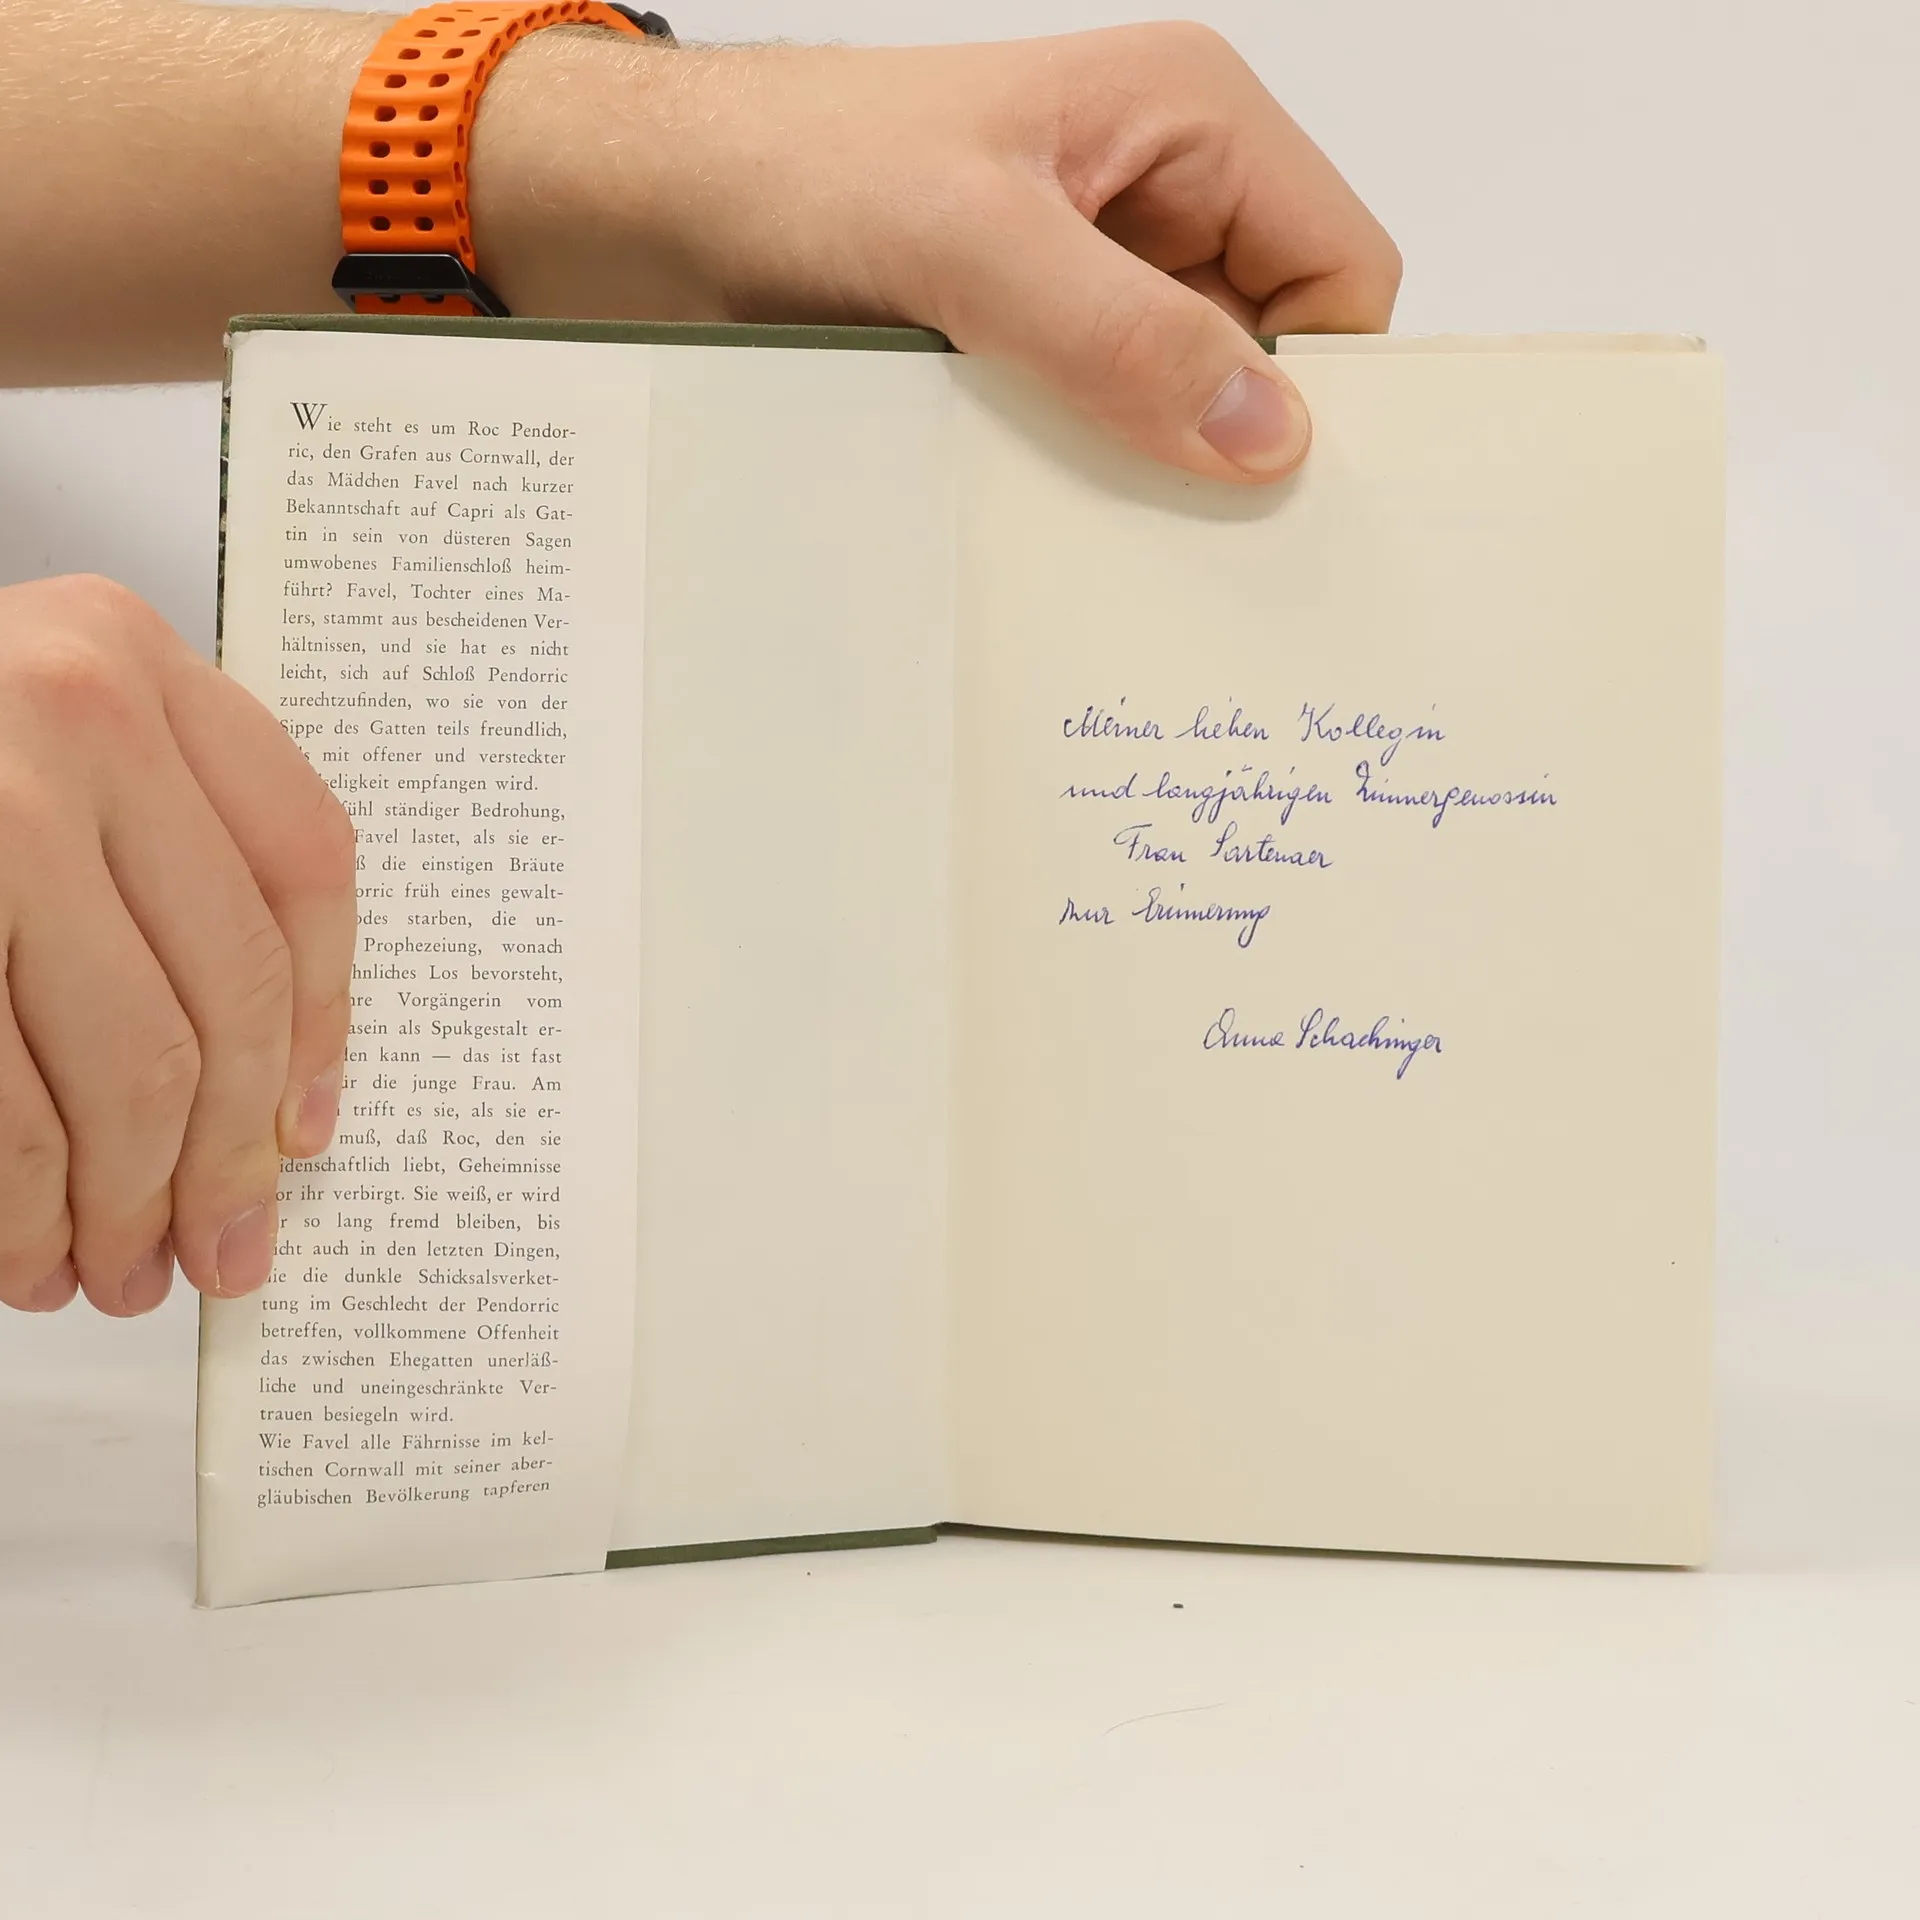 Wie steht es um Roc Pendor-
ric, den Grafen aus Cornwall, der
das Mädchen Favel nach kurzer
Bekanntschaft auf Capri als Gat-
tin in sein von düsteren Sagen
umwobenes Familienschloß heim-
führt? Favel, Tochter eines Ma-
lers, stammt aus bescheidenen Ver-
hältnissen, und sie hat es nicht
leicht, sich auf Schloß Pendorric
zurechtzufinden, wo sie von der
Sippe des Gatten teils freundlich,
mit offener und versteckter
seligkeit empfangen wird.
ühl ständiger Bedrohung,
Favel lastet, als sie er-
ß die einstigen Bräute
orric früh eines gewalt-
odes starben, die un-
Prophezeiung, wonach
hnliches Los bevorsteht,
hre Vorgängerin vom
asein als Spukgestalt er-
den kann — das ist fast
ür die junge Frau. Am
trifft es sie, als sie er-
muß, daß Roc, den sie
idenschaftlich liebt, Geheimnisse
or ihr verbirgt. Sie weiß, er wird
r so lang fremd bleiben, bis
icht auch in den letzten Dingen,
die die dunkle Schicksalsverket-
tung im Geschlecht der Pendorric
betreffen, vollkommene Offenheit
das zwischen Ehegatten unerläß-
liche und uneingeschränkte Ver-
trauen besiegeln wird.
Wie Favel alle Fährnisse im kel-
tischen Cornwall mit seiner aber-
gläubischen Bevölkerung tapferen
Meiner lieben Kollegin
und langjährigen Zimmergenossin
Frau Sartenaer
zur Erinnerung
Anna Schachinger